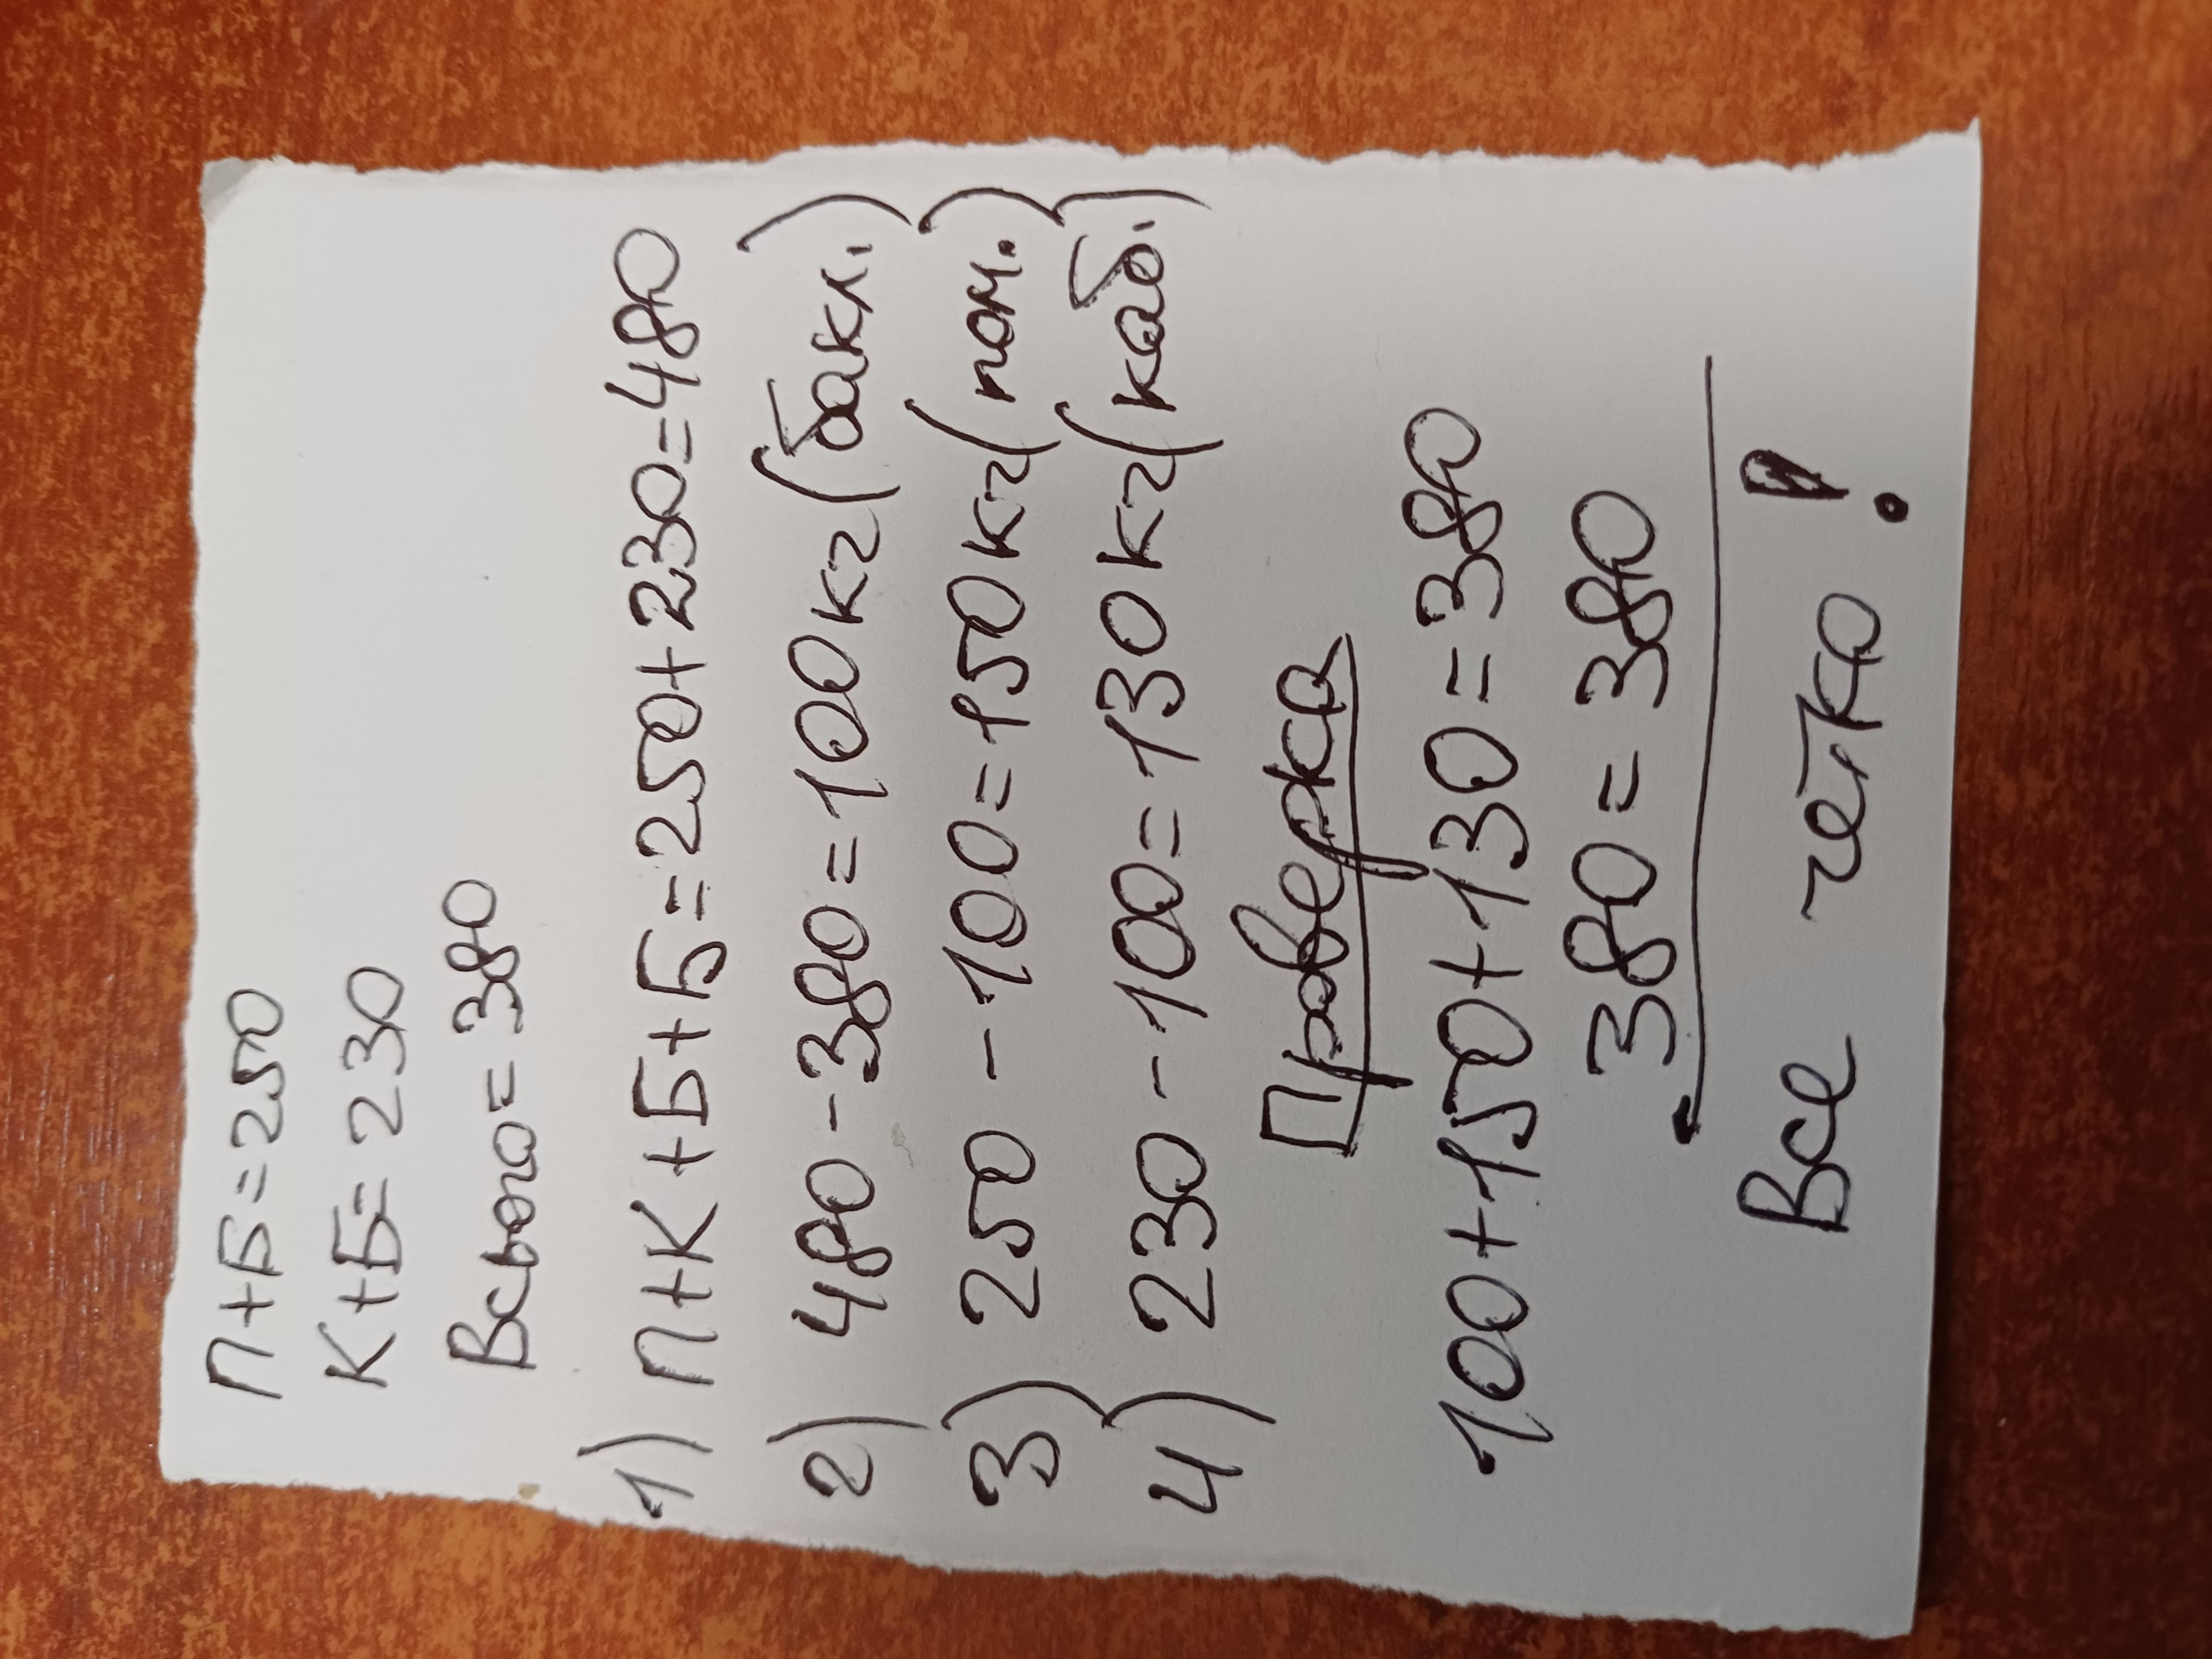 П+Б=250
К+Б=230
Всього=380
1) П+К+Б+Б=250+230=480
2) 480-380=100кг(бакл.)
3) 250-100=150кг(пом.)
4) 230-100=130кг(каб.)
Проверка
100+150+130=380
380=380
Все четко!